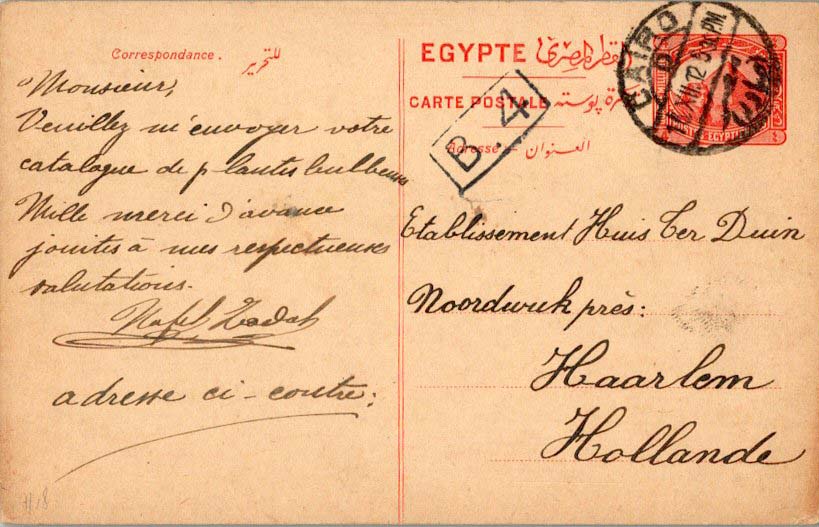 Correspondance . للتحرير
Monsieur,
Veuillez m'envoyer votre
catalogue de plantes bulbeuses
Mille merci d'avance
jointes à mes respectueuses
salutations.
adresse ci-contre:
EGYPTE القطر المصرى
CARTE POSTALE تذكرة بوسته
Adresse — العنوان
B. 4
CAIRO
XII.12
PM
POSTES EGYPTIENNES
Etablissement Huis Ter Duin
Noordwijk près:
Haarlem
Hollande